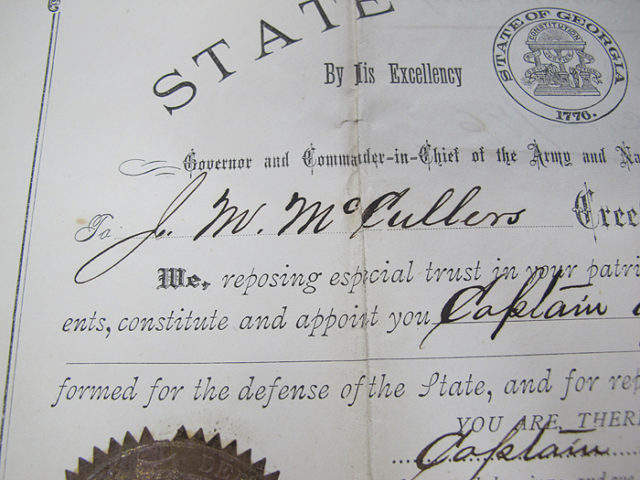 STATE
By His Excellency
STATE OF GEORGIA
CONSTITUTION
1776.
Governor and Commander-in-Chief of the Army and Na
To J. W. McCullers Gree
We, reposing especial trust in your patri
ents, constitute and appoint you Captain
formed for the defense of the State, and for rep
YOU ARE, THERE
Captain